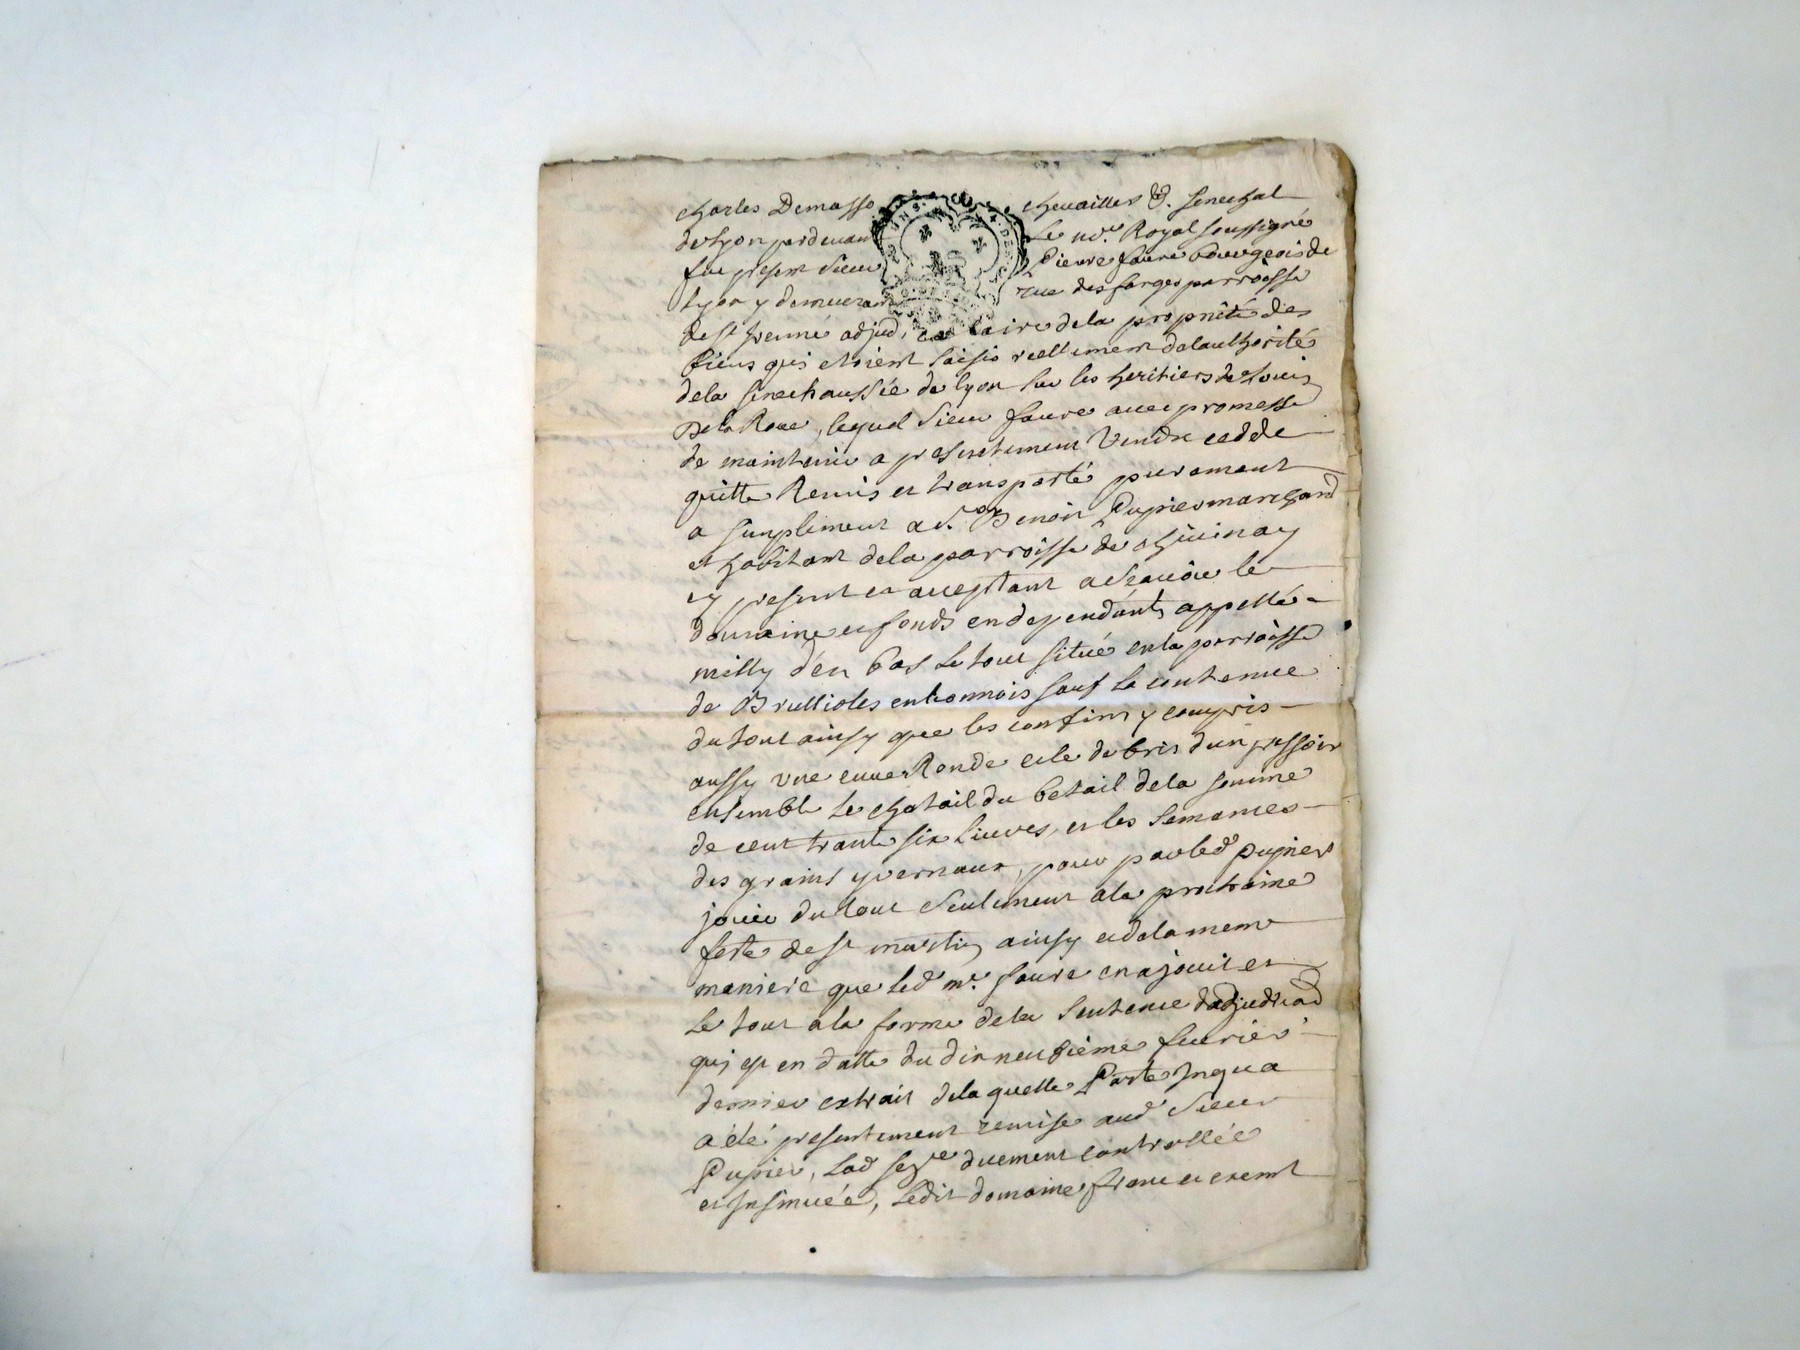 charles Demasso chevailler &. senechal
de Lyon pardevant Le no.re Royal soussigné
fut present sieur Pierre faure bourgeois de
Lyon y demeurant rue des forges parroisse
de st adjudicataire de la proprieté des
biens qui etoient saisis reellement delauthorité
dela senechaussée de lyon sur les heritiers de Louis
De la Roue, lequel sieur faure avec promesse
de maintenir a presentement Vendu cedde
quitte Remis et transporté purement
a simplement a s.r Benoit Pupier marchand
et habitant dela parroisse de
cy present et acceptant a scavoir le
domaine et fonds en dependants appellé
milly d'en bas le tout situé en la parroisse
de Brullioles en lionnois sauf la contenue
du tout ainsy que les confins y compris
aussy une cuve Ronde et le debris dun pressoir
ensemble Le chatail du betail dela somme
de cent trante six livres, et les semances
des grains yvernaux, pour par led Pupier
jouir du tout seulement a la prochaine
feste de st martin ainsy et de la meme
maniere que led m.r faure en a jouit et
Le tout a la forme dela sentence dadjudicaõn
qui est en datte du dix neufvième fevrier
dernier extrait dela quelle
a été presentement remise aud sieur
Pupier, Lad duement controllée
et Insinuée, Ledit domaine franc et exemt